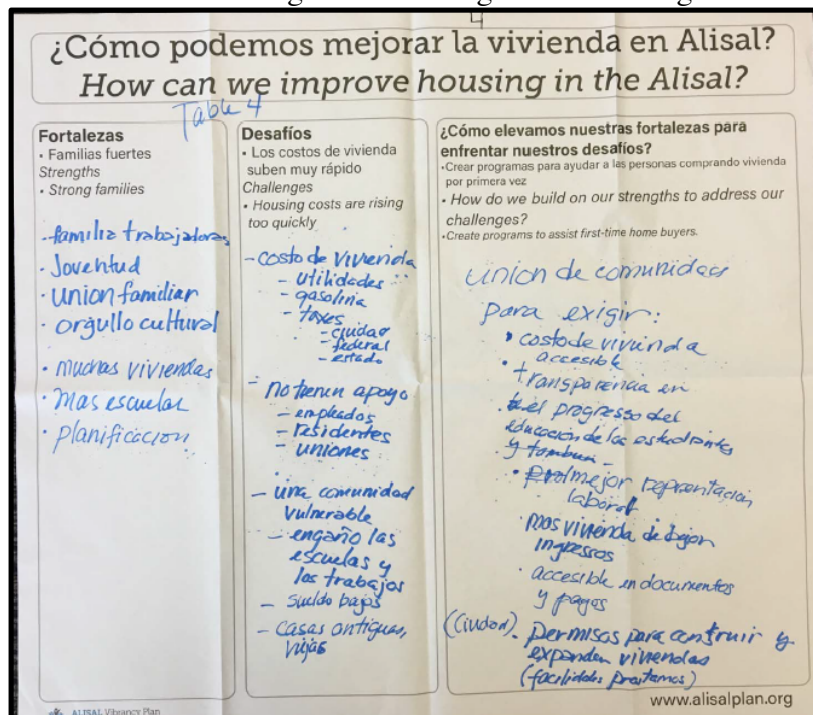 4
¿Cómo podemos mejorar la vivienda en Alisal?
How can we improve housing in the Alisal?
Table 4
Fortalezas
• Familias fuertes
Strengths
• Strong families
- familia trabajadoras
• Joventud
• Union familiar
• orgullo cultural
• muchas viviendas
• mas escuelas
• planificacion
Desafíos
• Los costos de vivienda
suben muy rápido
Challenges
• Housing costs are rising
too quickly
- costo de vivienda
- utilidades
- gasolina
- taxes
- ciudad
- federal
- estado
- no tienen apoyo
- empleados
- residentes
- uniones
- una comunidad
vulnerable
- engaño las
escuelas y
los trabajos
- sueldo bajos
- casas antiguas,
viejas
¿Cómo elevamos nuestras fortalezas para
enfrentar nuestros desafíos?
•Crear programas para ayudar a las personas comprando vivienda
por primera vez
• How do we build on our strengths to address our
challenges?
•Create programs to assist first-time home buyers.
union de comunidad
para exigir:
• costo de vivienda
accesible
• transparencia en
el progresso del
educación de los estudiantes
y tambien
• mejor reprentación
laboral
• mas vivienda de bajon
ingressos
• accesible en documentos
y pagos
(Ciudad). Permisos para construir y
expanden viviendas
(facilidades prestamos)
www.alisalplan.org
ALISAL Vibrancy Plan